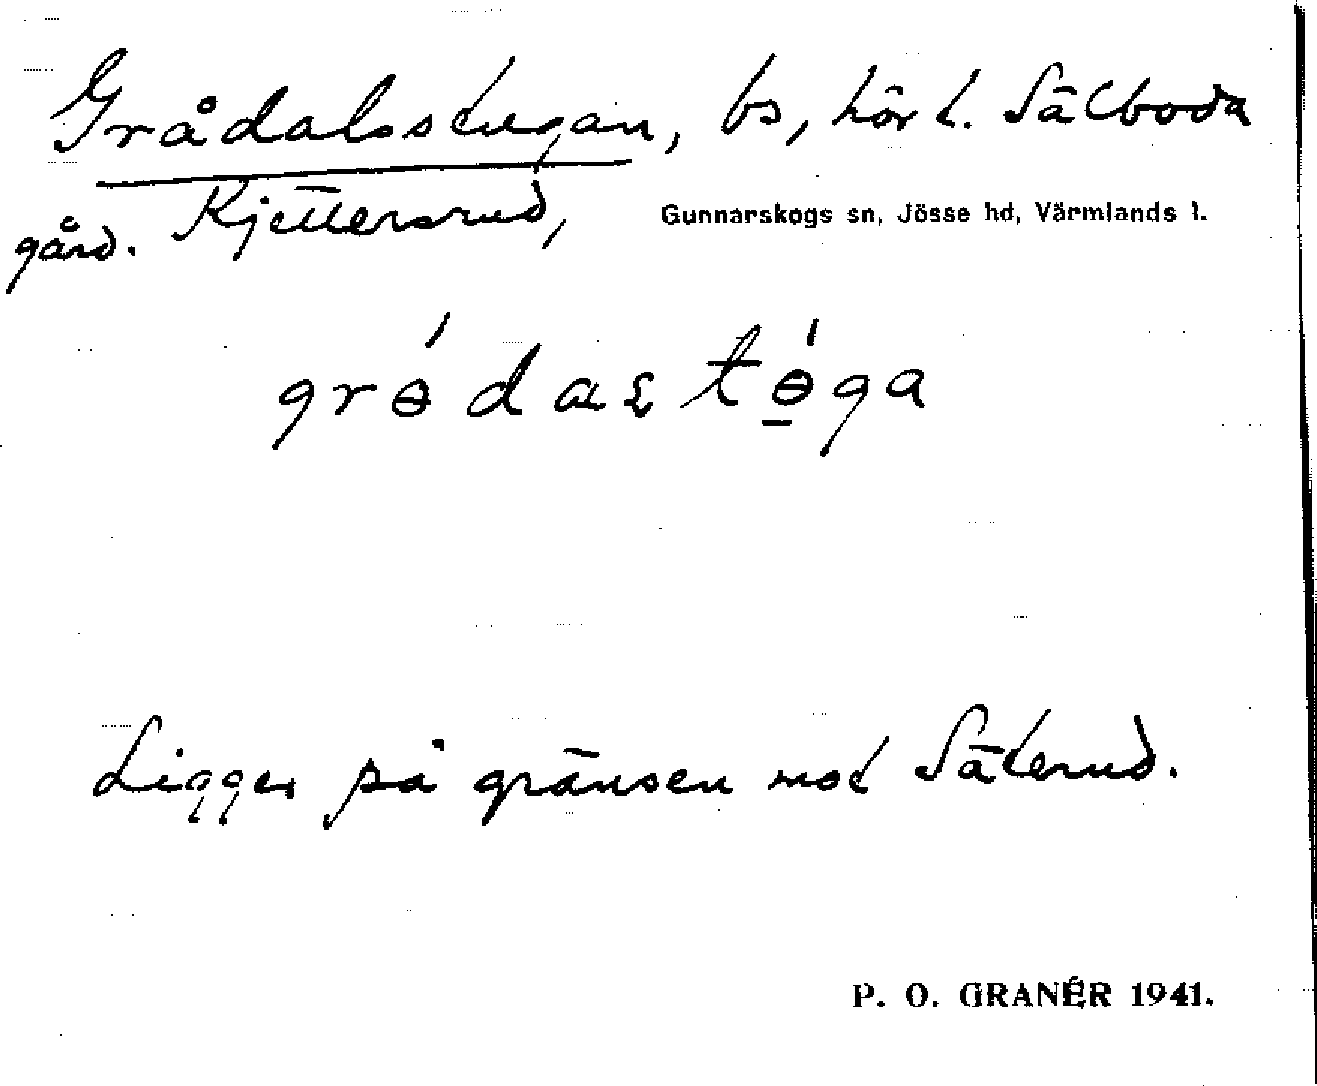 Grådalsstugan, bs, hör t. Sälboda
gård. Kjettersrud, Gunnarskogs sn, Jösse hd, Värmlands l.
Ligger på gränsen mot Säterud.
P. O. GRANÉR 1941.